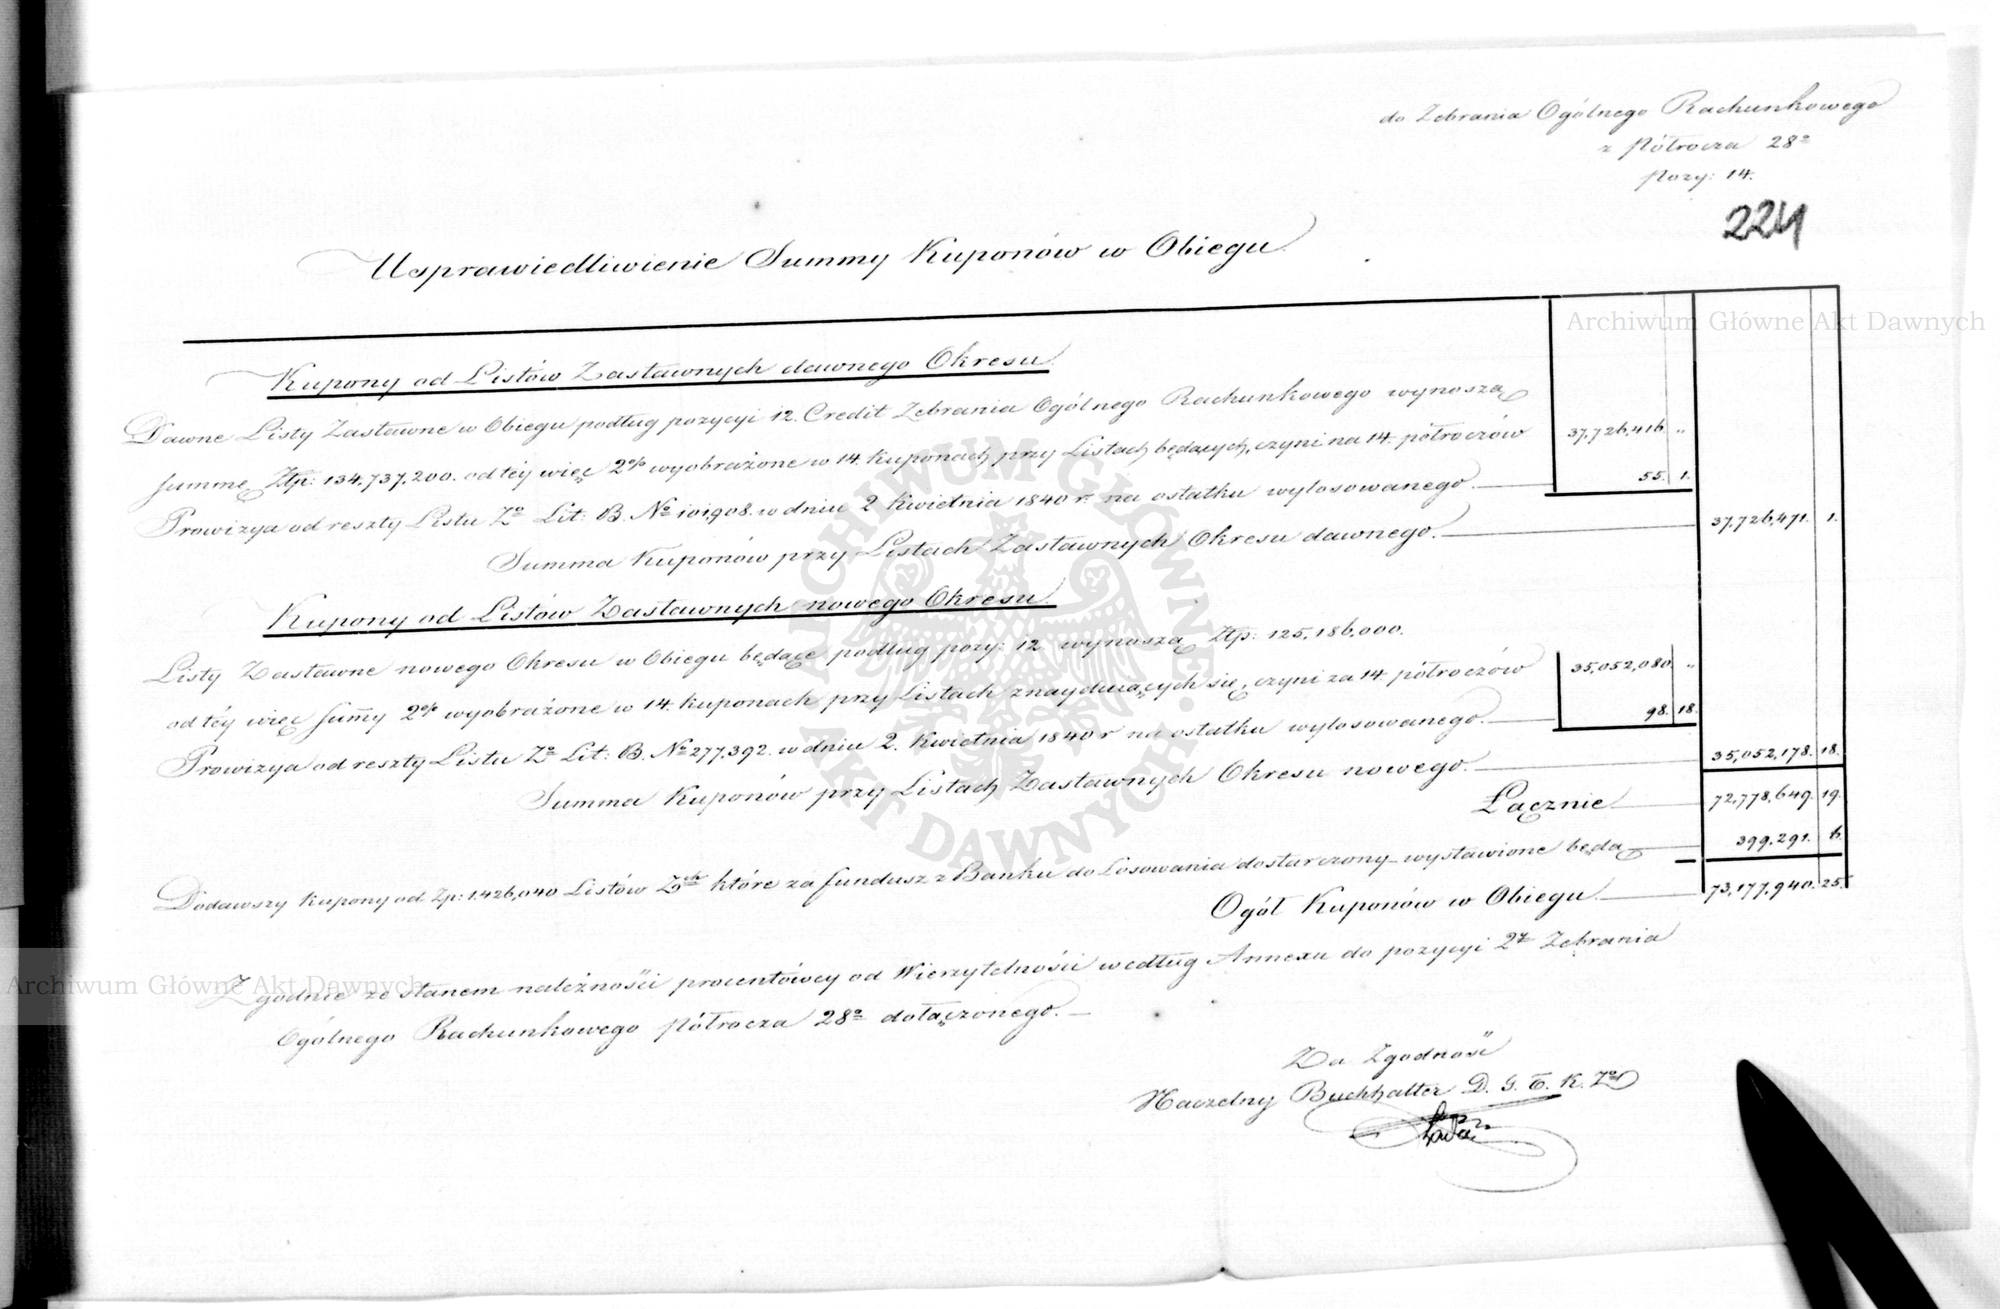 do Zebrania Ogólnego Rachunkowego
z Półrocza 28º
Pozy: 14.
224
Usprawiedliwienie Summy Kuponów w Obiegu
Archiwum Główne Akt Dawnych
Kupony od Listów Zastawnych dawnego Okresu.
Dawne Listy Zastawne w Obiegu podług pozycyi 12. Credit Zebrania Ogólnego Rachunkowego wynoszą
summę Złp: 134,737,200. od téy więc 2% wyobrażone w 14. Kuponach przy Listach będących, czyni na 14. półroczów 37,726,416. „
Prowizya od reszty Listu Zº Lit: B. Nº 101,908. w dniu 2 Kwietnia 1840 r. na ostatku wylosowanego. 55. 1.
Summa Kuponów przy Listach Zastawnych Okresu dawnego. 37,726,471. 1.
Kupony od Listów Zastawnych nowego Okresu.
Listy Zastawne nowego Okresu w Obiegu będące podług pozy: 12. wynoszą Złp: 125,186,000.
od téy więc summy 2% wyobrażone w 14. Kuponach przy Listach znayduiących się, czyni za 14. półroczów 35,052,080. „
Prowizya od reszty Listu Zº Lit: B. Nº 277,392. w dniu 2. Kwietnia 1840 r na ostatku wylosowanego. 98. 18.
Summa Kuponów przy Listach Zastawnych Okresu nowego. 35,052,178. 18.
Łącznie 72,778,649. 19.
Dodawszy Kupony od Zp: 1.426,040 Listów Zych które za fundusz z Banku do Losowania dostarczony wystawione będą 399,291. 6.
Ogół Kuponów w Obiegu 73,177,940. 25.
Zgodnie ze stanem należności procentowey od Wierzytelności według Annexu do pozycyi 2º Zebrania
Ogólnego Rachunkowego Półrocza 28º dołączonego.
Archiwum Główne Akt Dawnych
Za Zgodność
Naczelny Buchhalter D. G. T. K. Zgo
ARCHIWUM GŁÓWNE AKT DAWNYCH